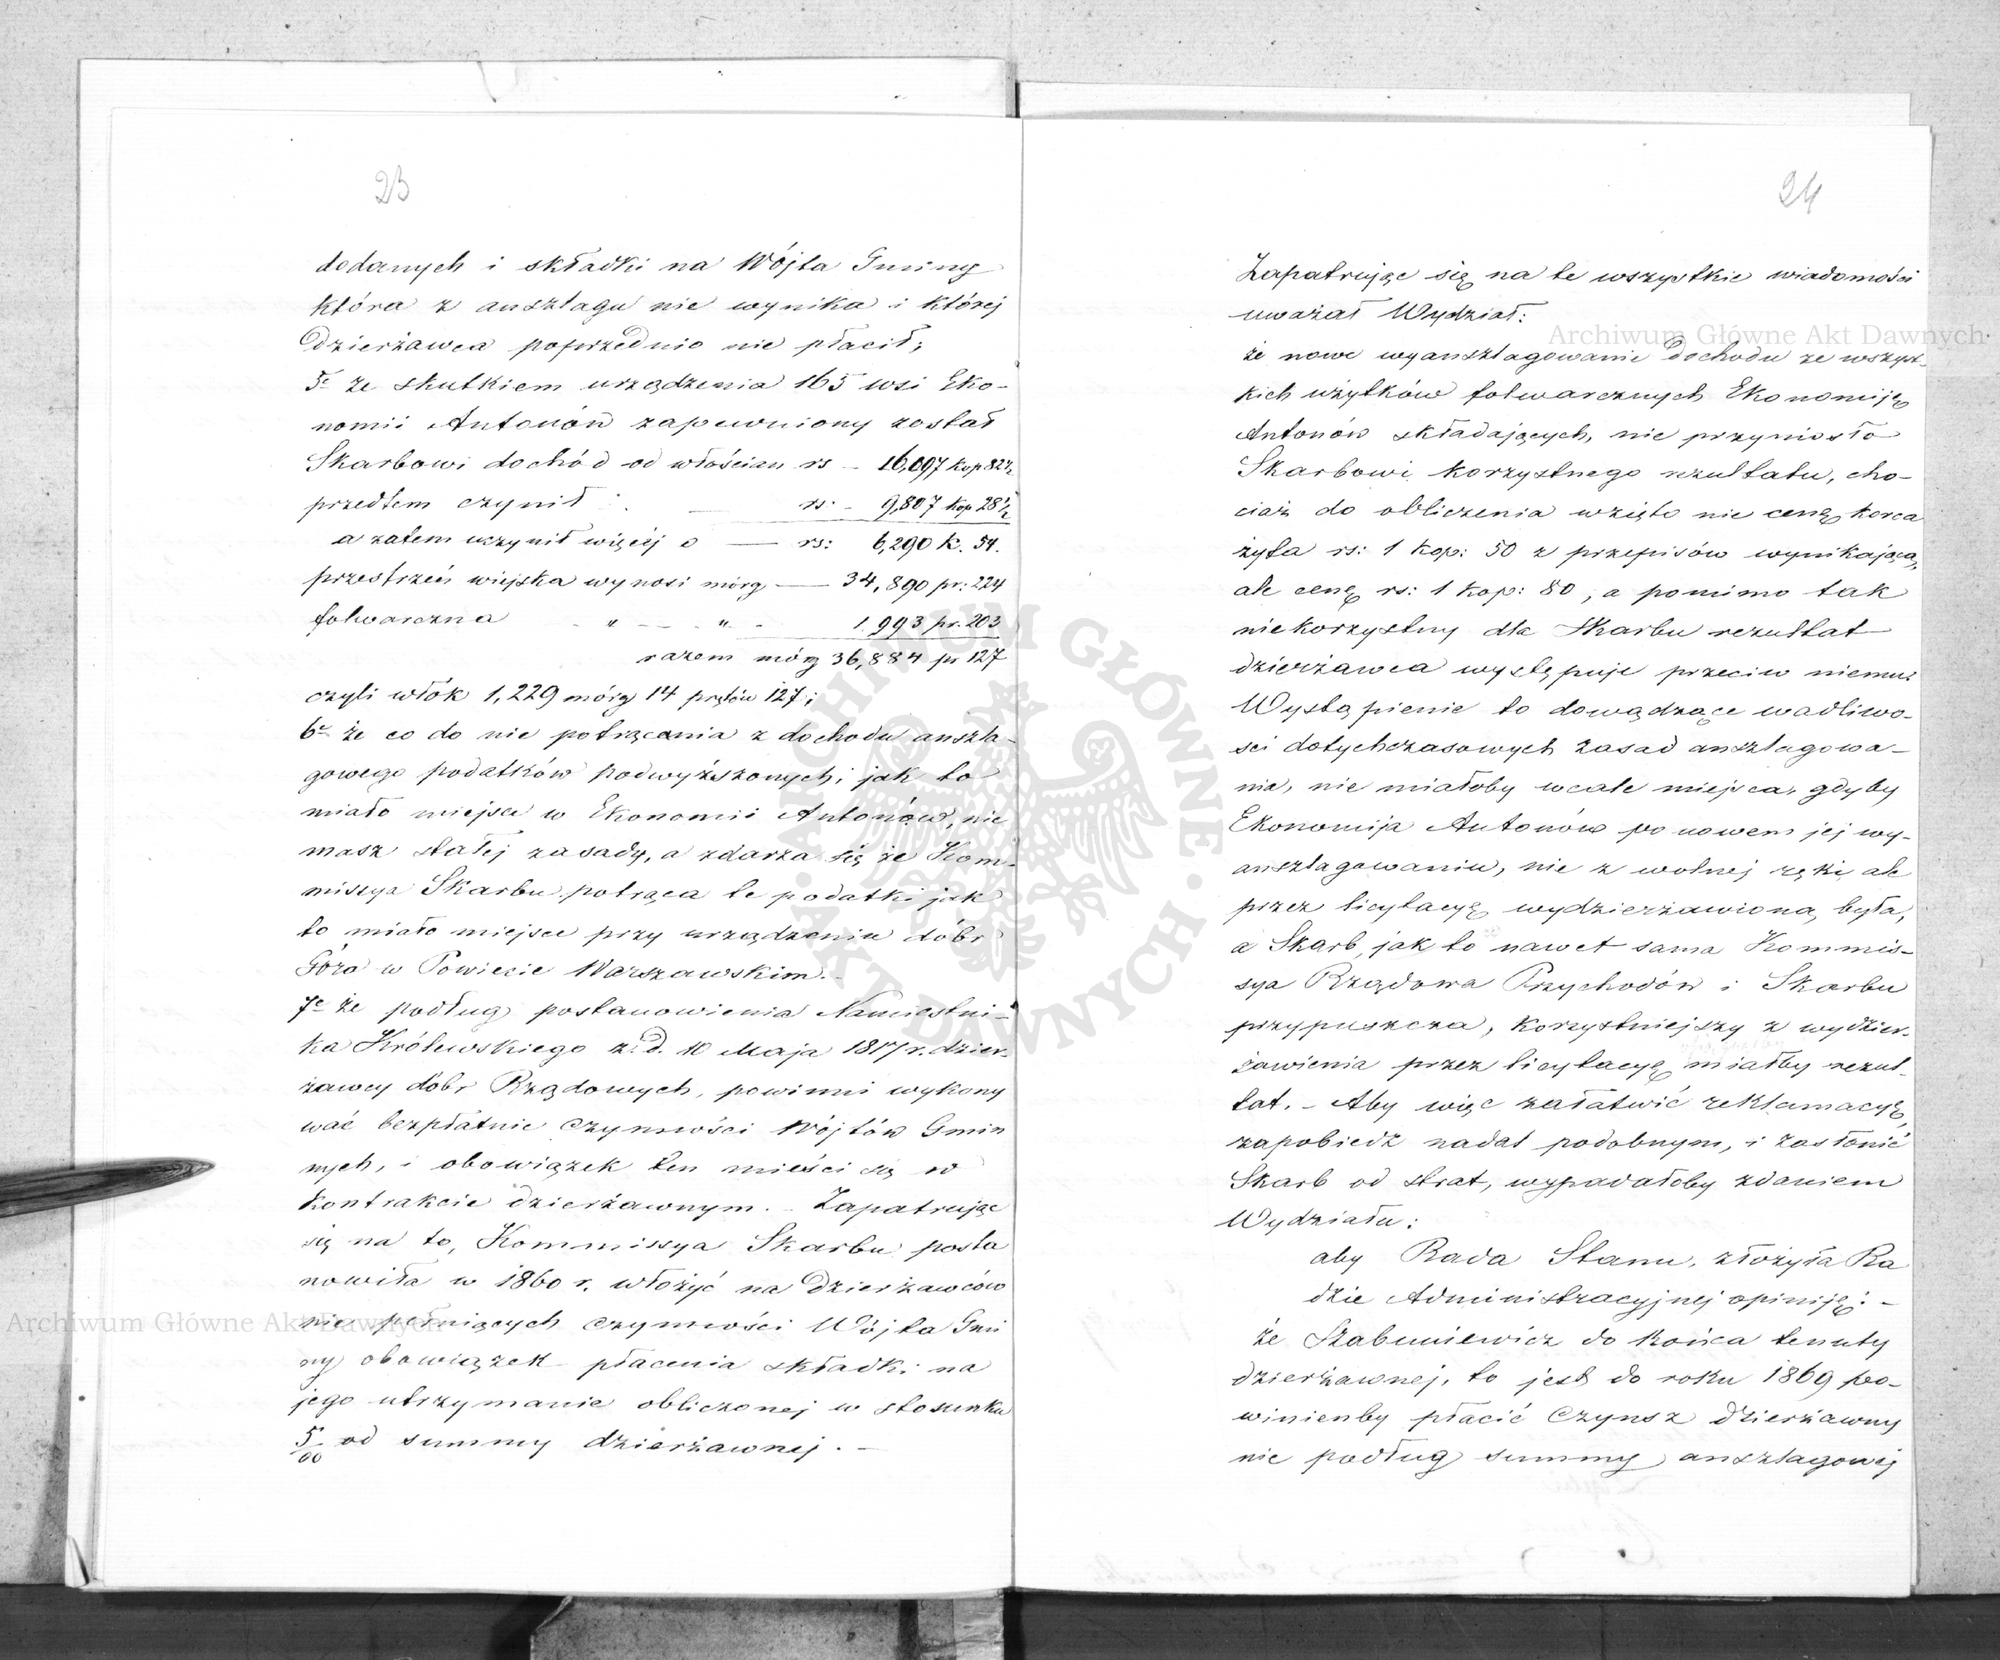 23
dodanych i składki na Wójta Gminy
która z ansztagu nie wynika i której
Dzierżawca poprzednio nie płacił;
5e że skutkiem urządzenia 165 wsi Eko-
nomii Antonów zapewniony został
Skarbowi dochód od włościan rs – 16,097 kop 82½
przedtem czynił rs: – 9,807 kop 28½
a zatem uczynił więcej o — rs: 6,290 k. 54.
przestrzeń wiejska wynosi mórg — 34,890 pr: 224
folwarczna „ — „ – 1.993 pr. 203
razem mórg 36,884 pr 127
czyli włók 1,229 mórg 14 prętów 127;
6e że co do nie potrącania z dochodu anszta-
gowego podatków podwyższonych; jak to
miało miejsce w Ekonomii Antonów, nie
masz stałej zasady, a zdarza się że Kom-
missya Skarbu potrąca te podatki jak
to miało miejsce przy urządzeniu dóbr
Góra w Powiecie Warszawskim. –
7e że podług postanowienia Namiestni-
ka Królewskiego z. d. 10 Maja 1817 r. dzier-
żawcy dóbr Rządowych, powinni wykony
wać bezpłatnie czynności Wójtów Gmin
nych, i obowiązek ten mieści się w
kontrakcie dzierżawnym. – Zapatrując
się na to, Kommissya Skarbu posta
nowiła w 1860 r. włożyć na Dzierżawców
nie pełniących czynności Wójta Gmi
ny obowiązek płacenia składki na
jego utrzymanie obliczonej w stosunku
5/00 od summy dzierżawnej. –
24
Zapatrując się na te wszystkie wiadomości
uważał Wydział:
że nowe wyansztagowanie Dochodu ze wszyst-
kich użytków folwarcznych Ekonomiję
Antonów składających, nie przyniosło
Skarbowi korzystnego rezultatu, cho-
ciaż do obliczenia wzięto nie cenę korca
żyta rs: 1 kop: 50 z przepisów wynikającą,
ale cenę rs: 1 kop: 80, a pomimo tak
niekorzystny dla Skarbu rezultat
dzierżawca występuje przeciw niemu:
Wystąpienie to dowodzące wadliwo-
ści dotychczasowych zasad ansztagowa-
nia, nie miałoby wcale miejsca, gdyby
Ekonomija Antonów po nowem jej wy-
ansztagowaniu, nie z wolnej ręki ale
przez licytacyę wydzierżawioną była,
a Skarb, jak to nawet sama Kommis-
sya Rządowa Przychodów i Skarbu
przypuszcza, korzystniejszy z wydzier-
żawienia przez licytacyę miałby rezul-
tat. – Aby więc załatwić reklamacyę,
zapobiedz nadal podobnym, i zasłonić
Skarb od strat, wypadałoby zdaniem
Wydziału:
aby Rada Stanu, złożyła Ra
dzie Administracyjnej opiniję: –
że Szabuniewicz do końca tenuty
dzierżawnej, to jest do roku 1869 po-
winienby płacić czynsz dzierżawny
nie podług summy ansztagowej
Archiwum Główne Akt Dawnych
Archiwum Główne Akt Dawnych
ARCHIWUM GŁÓWNE · AKT DAWNYCH ·